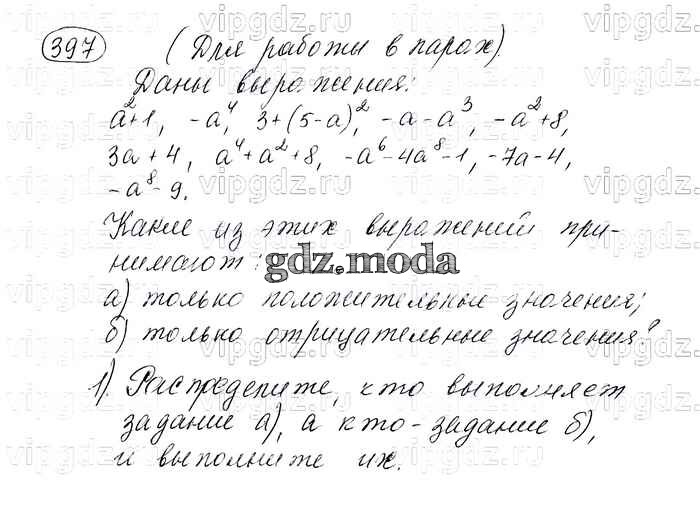 397 (Для работы в парах).
Даны выражения:
a²+1, -a⁴, 3+(5-a)², -a-a³, -a²+8,
3a+4, a⁴+a²+8, -a⁶-4a⁸-1, -7a-4,
-a⁸-9.
Какие из этих выражений при-
нимают:
gdz.moda
а) только положительные значения;
б) только отрицательные значения?
1) Распределите, кто выполняет
задание а), а кто - задание б),
и выполните их.
vipgdz.ru